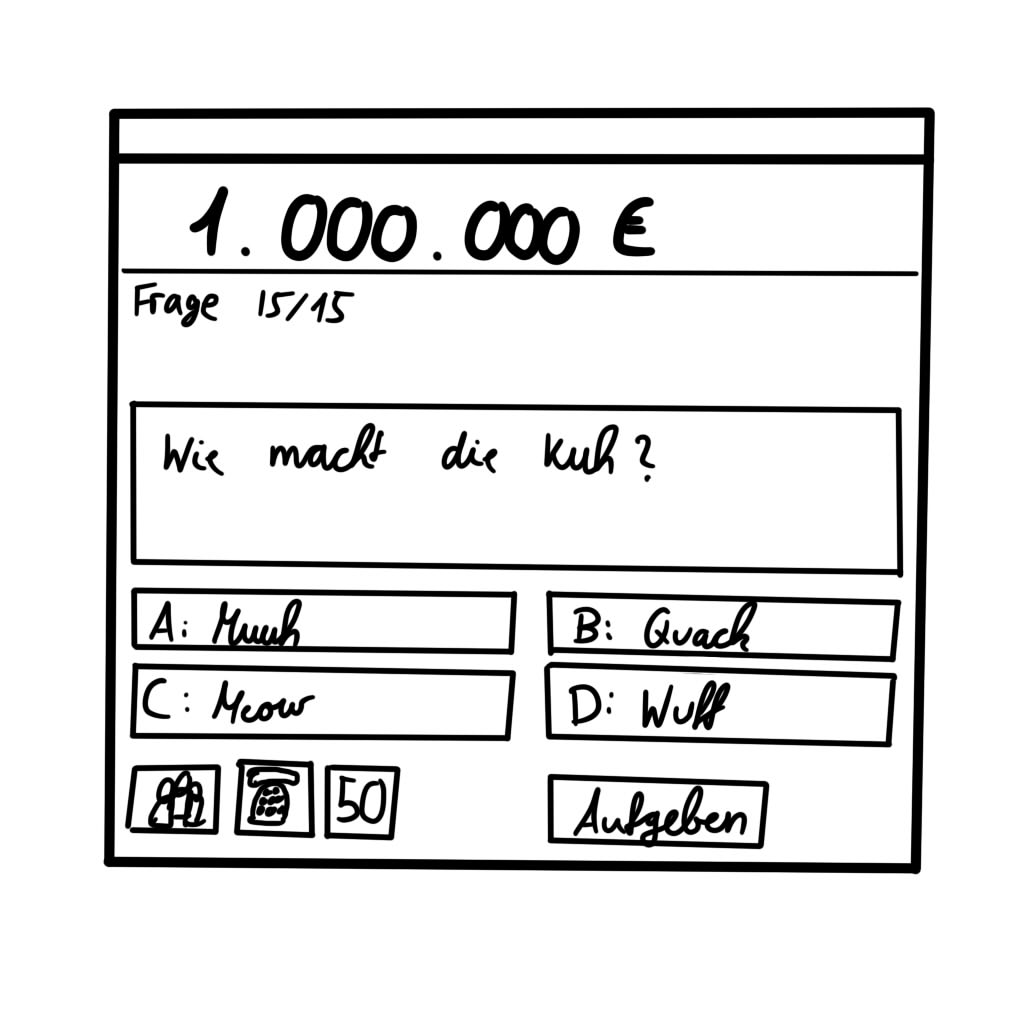 1.000.000 €
Frage 15/15
Wie macht die Kuh?
A: Muuh
B: Quack
C: Meow
D: Wuff
50
Aufgeben